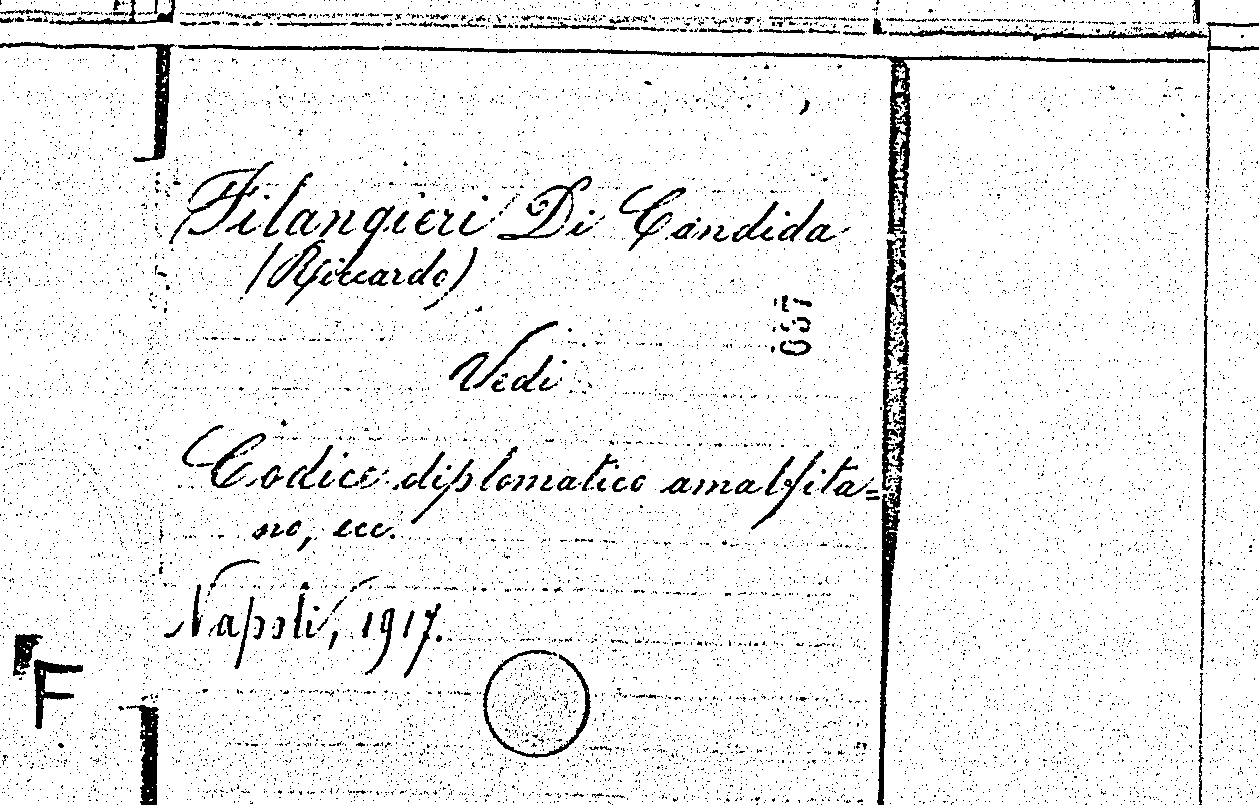 Filangieri Di Candida
(Riccardo)
037
Vedi
Codice diplomatico amalfita=
no, ecc.
Napoli, 1917.
F